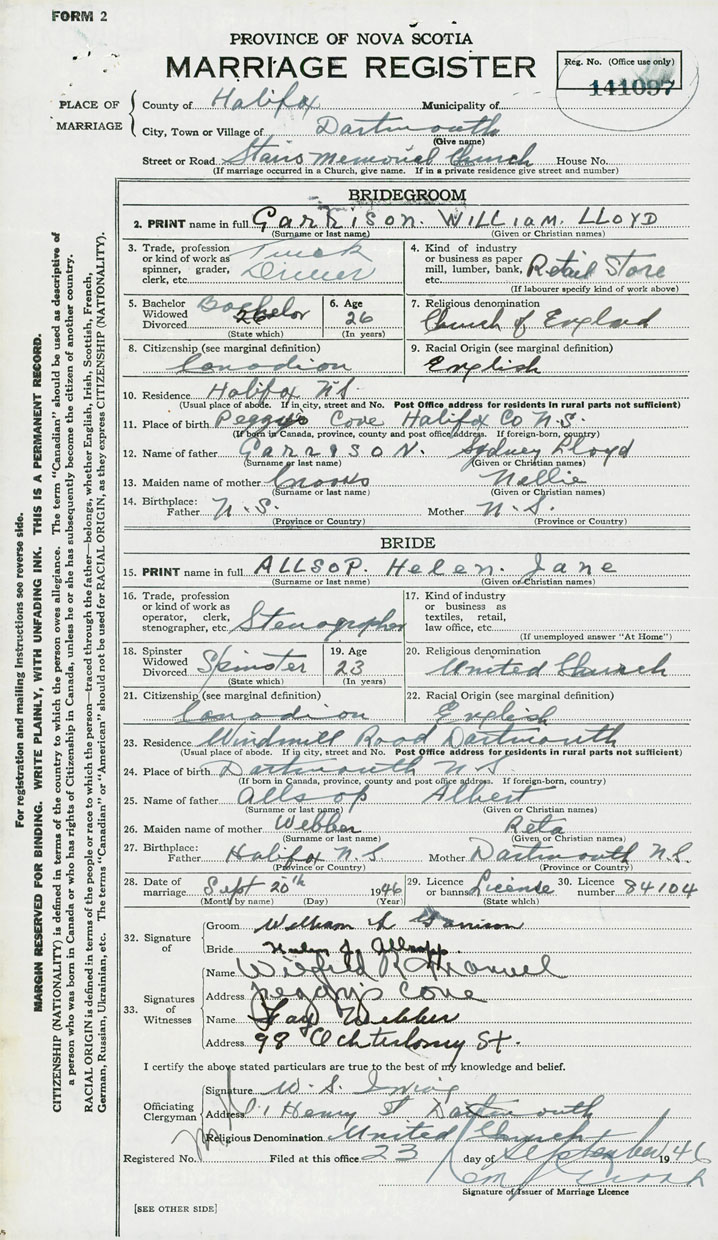 FORM 2
PROVINCE OF NOVA SCOTIA
MARRIAGE REGISTER
Reg. No. (Office use only)
141097
PLACE OF MARRIAGE
County of Halifax Municipality of
City, Town or Village of Dartmouth
(Give name)
Street or Road Stairs Memorial Church House No.
(If marriage occurred in a Church, give name. If in a private residence give street and number)
BRIDEGROOM
2. PRINT name in full GARRISON. WILLIAM. LLOYD
(Surname or last name) (Given or Christian names)
3. Trade, profession or kind of work as spinner, grader, clerk, etc. Truck Driver
4. Kind of industry or business as paper mill, lumber, bank, Retail Store
(If labourer specify kind of work above)
5. Bachelor Widowed Divorced Bachelor
(State which)
6. Age 26
(In years)
7. Religious denomination
Church of England
8. Citizenship (see marginal definition)
Canadian
9. Racial Origin (see marginal definition)
English
10. Residence Halifax N.S.
(Usual place of abode. If in city, street and No. Post Office address for residents in rural parts not sufficient)
11. Place of birth Peggys Cove Halifax Co N.S.
(If born in Canada, province, county and post office address. If foreign-born, country)
12. Name of father GARRISON. Sydney Lloyd
(Surname or last name) (Given or Christian names)
13. Maiden name of mother Crooks Nellie
(Surname or last name) (Given or Christian names)
14. Birthplace: Father N.S. Mother N.S.
(Province or Country) (Province or Country)
BRIDE
15. PRINT name in full ALLSOP. Helen. Jane
(Surname or last name) (Given or Christian names)
16. Trade, profession or kind of work as operator, clerk, stenographer, etc. Stenographer
17. Kind of industry or business as textiles, retail, law office, etc.
(If unemployed answer "At Home")
18. Spinster Widowed Divorced Spinster
(State which)
19. Age 23
(In years)
20. Religious denomination
United Church
21. Citizenship (see marginal definition)
Canadian
22. Racial Origin (see marginal definition)
English
23. Residence Windmill Road Dartmouth
(Usual place of abode. If in city, street and No. Post Office address for residents in rural parts not sufficient)
24. Place of birth Dartmouth N.S.
(If born in Canada, province, county and post office address. If foreign-born, country)
25. Name of father Allsop Albert
(Surname or last name) (Given or Christian names)
26. Maiden name of mother Webber Reta
(Surname or last name) (Given or Christian names)
27. Birthplace: Father Halifax N.S. Mother Dartmouth N.S.
(Province or Country) (Province or Country)
28. Date of marriage Sept 20th 1946
(Month by name) (Day) (Year)
29. Licence or banns License
(State which)
30. Licence number 84104
32. Signature of
Groom William L Garrison
Bride Helen J. Allsop
33. Signatures of Witnesses
Name Wilfred R
Address Peggy's Cove
Name Fay Webber
Address 98 Ochterlony St.
I certify the above stated particulars are true to the best of my knowledge and belief.
Officiating Clergyman
Signature W. S. Irving
Address Henry St Dartmouth
Religious Denomination United Church
Registered No. Filed at this office 23 day of September 1946
Signature of Issuer of Marriage Licence
[SEE OTHER SIDE]
For registration and mailing instructions see reverse side.
MARGIN RESERVED FOR BINDING. WRITE PLAINLY, WITH UNFADING INK. THIS IS A PERMANENT RECORD.
CITIZENSHIP (NATIONALITY) is defined in terms of the country to which the person owes allegiance. The term "Canadian" should be used as descriptive of
a person who was born in Canada or who has rights of Citizenship in Canada, unless he or she has subsequently become the citizen of another country.
RACIAL ORIGIN is defined in terms of the people or race to which the person—traced through the father—belongs, whether English, Irish, Scottish, French,
German, Russian, Ukrainian, etc. The terms "Canadian" or "American" should not be used for RACIAL ORIGIN, as they express CITIZENSHIP (NATIONALITY).